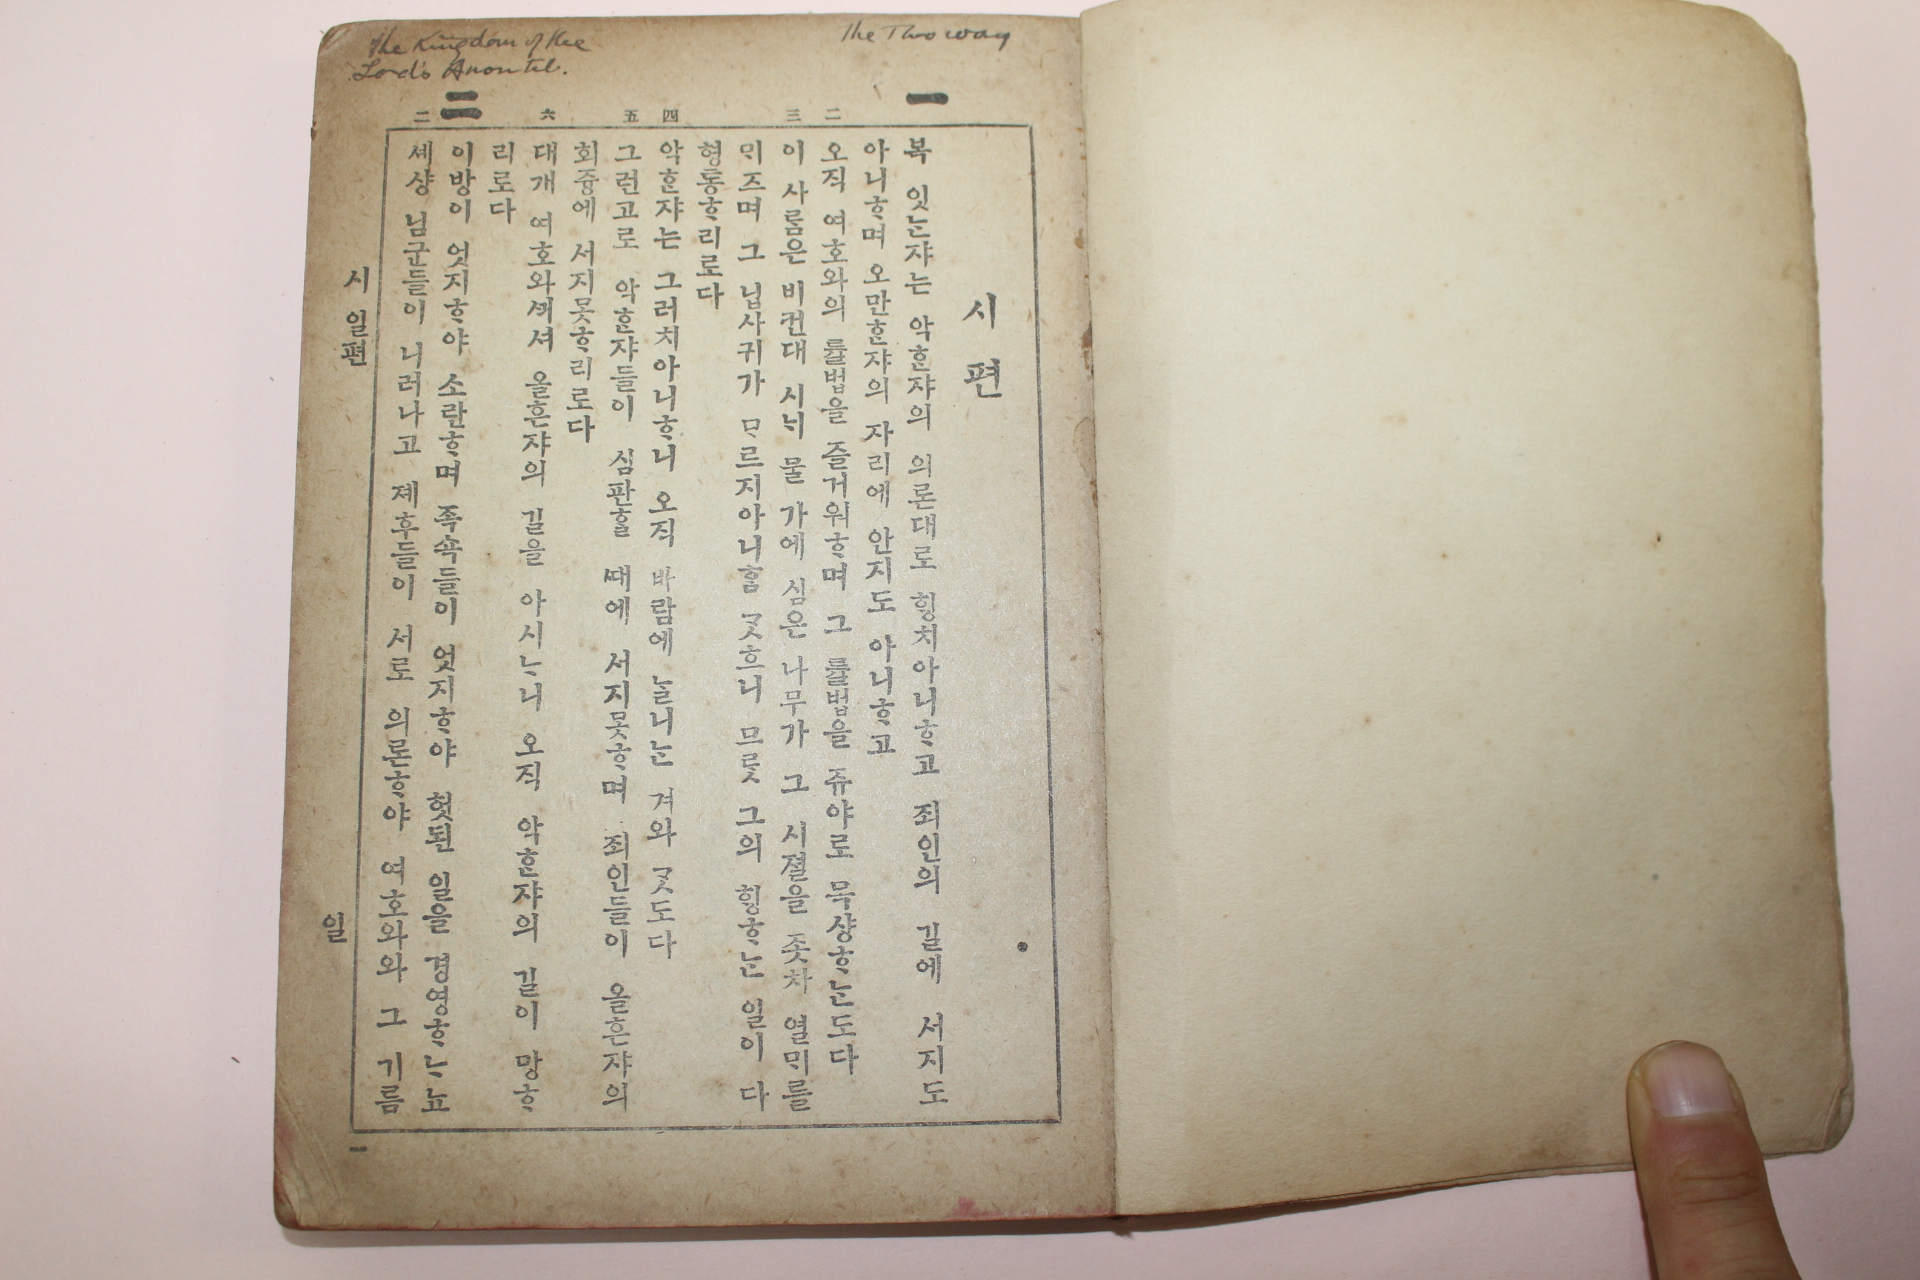 The Two way
The Kingdom of the
Lord's
시편
一
복 잇ᄂᆞᆫ쟈는 악ᄒᆞᆫ쟈의 의론대로 ᄒᆡᆼ치아니ᄒᆞ고 죄인의 길에 서지도
아니ᄒᆞ며 오만ᄒᆞᆫ쟈의 자리에 안지도 아니ᄒᆞ고
二 오직 여호와의 률법을 즐거워ᄒᆞ며 그 률법을 쥬야로 묵샹ᄒᆞᄂᆞᆫ도다
三 이 사ᄅᆞᆷ은 비컨대 시ᄂᆡ 물 가에 심은 나무가 그 시졀을 좃차 열ᄆᆡ를
ᄆᆡ즈며 그 닙사귀가 ᄆᆞ르지아니ᄒᆞᆷ ᄀᆞᆺ흐니 므ᄅᆞᆺ 그의 ᄒᆡᆼᄒᆞᄂᆞᆫ 일이 다
형통ᄒᆞ리로다
四 악ᄒᆞᆫ쟈는 그러치아니ᄒᆞ니 오직 바람에 ᄂᆞᆯ니ᄂᆞᆫ 겨와 ᄀᆞᆺ도다
五 그런고로 악ᄒᆞᆫ쟈들이 심판ᄒᆞᆯ 때에 서지못ᄒᆞ며 죄인들이 올흔쟈의
회즁에 서지못ᄒᆞ리로다
六 대개 여호와ᄭᅴ셔 올흔쟈의 길을 아시ᄂᆞ니 오직 악ᄒᆞᆫ쟈의 길이 망ᄒᆞ
리로다
二
이방이 엇지ᄒᆞ야 소란ᄒᆞ며 족쇽들이 엇지ᄒᆞ야 헛된 일을 경영ᄒᆞᄂᆞ뇨
二 셰샹 님군들이 니러나고 졔후들이 서로 의론ᄒᆞ야 여호와와 그 기름
시 일편
일
一